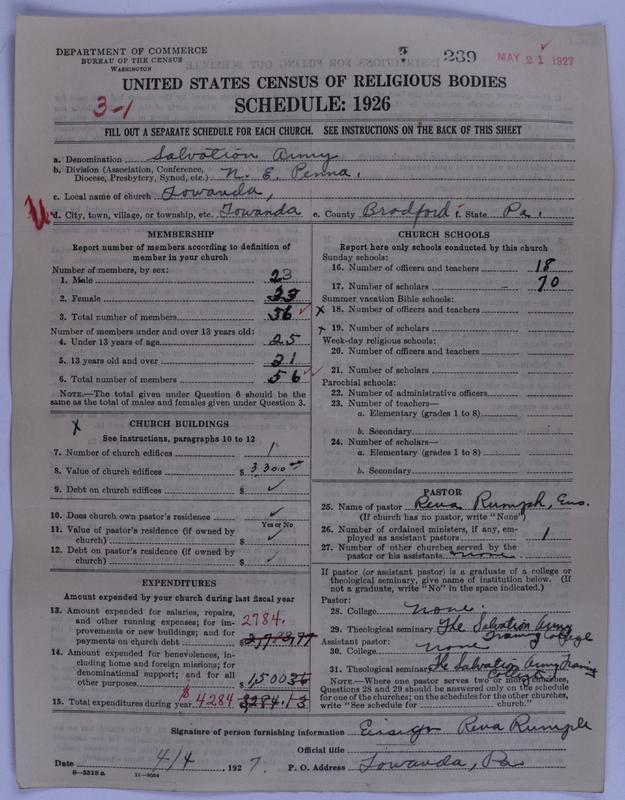 DEPARTMENT OF COMMERCE
BUREAU OF THE CENSUS
WASHINGTON
239
MAY 21 1927
UNITED STATES CENSUS OF RELIGIOUS BODIES
3-1
SCHEDULE: 1926
FILL OUT A SEPARATE SCHEDULE FOR EACH CHURCH. SEE INSTRUCTIONS ON THE BACK OF THIS SHEET
a. Denomination Salvation Army
b. Division (Association, Conference, Diocese, Presbytery, Synod, etc.) N. E. Penna.
c. Local name of church Towanda,
d. City, town, village, or township, etc. Towanda e. County Bradford f. State Pa.
MEMBERSHIP
Report number of members according to definition of
member in your church
Number of members, by sex:
1. Male 23
2. Female 33
3. Total number of members 56
Number of members under and over 13 years old:
4. Under 13 years of age 25
5. 13 years old and over 31
6. Total number of members 56
NOTE.—The total given under Question 6 should be
same as the total of males and females given under Question 3.
X
CHURCH BUILDINGS
See instructions, paragraphs 10 to 12
7. Number of church edifices 1
8. Value of church edifices $ 3300
9. Debt on church edifices $ ✓
10. Does church own pastor's residence ✓
Yes or No
11. Value of pastor's residence (if owned by
church) $ ✓
12. Debt on pastor's residence (if owned by
church) $ ✓
EXPENDITURES
Amount expended by your church during last fiscal year
13. Amount expended for salaries, repairs,
and other running expenses; for im-
provements or new buildings; and for
payments on church debt 2784.
14. Amount expended for benevolences, in-
cluding home and foreign missions; for
denominational support; and for all
other purposes $ 1,500
15. Total expenditures during year $ 4284 3284.13
CHURCH SCHOOLS
Report here only schools conducted by this church
Sunday schools:
16. Number of officers and teachers 18
17. Number of scholars 70
Summer vacation Bible schools:
X 18. Number of officers and teachers
19. Number of scholars
Week-day religious schools:
20. Number of officers and teachers
21. Number of scholars
Parochial schools:
22. Number of administrative officers
23. Number of teachers—
a. Elementary (grades 1 to 8)
b. Secondary
24. Number of scholars—
a. Elementary (grades 1 to 8)
b. Secondary
PASTOR
25. Name of pastor Reva Rumph, Ens.
(If church has no pastor, write "None")
26. Number of ordained ministers, if any, em-
ployed as assistant pastors 1
27. Number of other churches served by the
pastor or his assistants none
If pastor (or assistant pastor) is a graduate of a college or
theological seminary, give name of institution below. (If
not a graduate, write "No" in the space indicated.)
Pastor:
28. College none.
29. Theological seminary The Salvation Army
Training College
Assistant pastor:
30. College none
31. Theological seminary The Salvation Army Training
College
NOTE.—Where one pastor serves two or more churches,
Questions 28 and 29 should be answered only on the schedule
for one of the churches; on the schedules for the other churches,
write "See schedule for church."
Signature of person furnishing information Ensign Reva Rumph
Official title
Date 4/4, 1927. P. O. Address Towanda, Pa
8—5318 a 11—9034